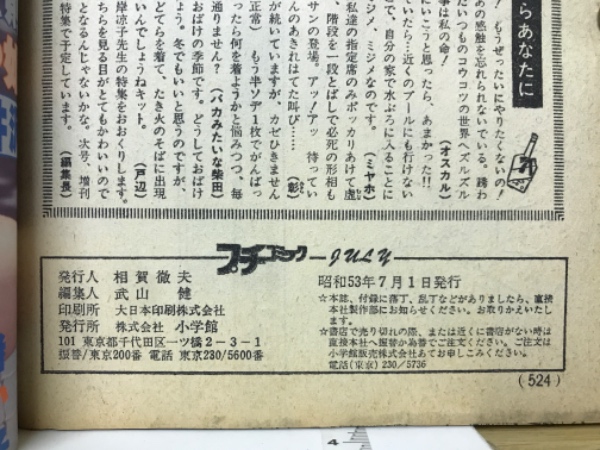 らあなたに
！もうぜったいにやりたくないの！
あの感触を忘れられないでいる。誘わ
だいつものコウコツの世界へズルズル
事は私の命！
（オスカル）
にいこうと思ったら、あまかった!!
ていたら…近くのプールにも行けない
とで、自分の家で水ぶろに入ることに
ジメ、ミジメなのです。
（ミヤホ）
、階段を一段とばしで必死の形相も
私達の指定席のみポッカリあけて虚
サンの登場。アッ！アッ　待ってい
んのあきれはてた叫び……
（彰）
が続いていますが、カゼひきません
正常）もう半ソデ1枚でがんばっ
ったら何を着ようかと悩みつつ、毎
通りません？
（バカみたいな柴田）
おばけの季節です。どうしておばけ
ょう。冬でもいいと思うのですが、
どてらを着て、たき火のそばに出現
いんでしょうねキット。
（戸辺）
岸凉子先生の特集をおおくりします。
ちらを見る目がとてもかわいいので
となるんじゃないかな。次号、増刊
特集で予定しています。
（編集長）
プチコミック—JULY—
発行人　相賀徹夫
編集人　武山　健
印刷所　大日本印刷株式会社
発行所　株式会社 小学館
101 東京都千代田区一ツ橋2－3－1
振替/東京200番 電話 東京230/5600番
昭和53年7月1日発行
☆本誌、付録に落丁、乱丁などがありましたら、直接
本社製作部にお知らせください。お取りかえいた
します。
☆書店で売り切れの際、または近くに書店がない時は
直接本社へ振替か為替でご注文ください。ご注文は
小学館販売株式会社あてお申しこみください。
電話（東京）230/5736
（524）
4